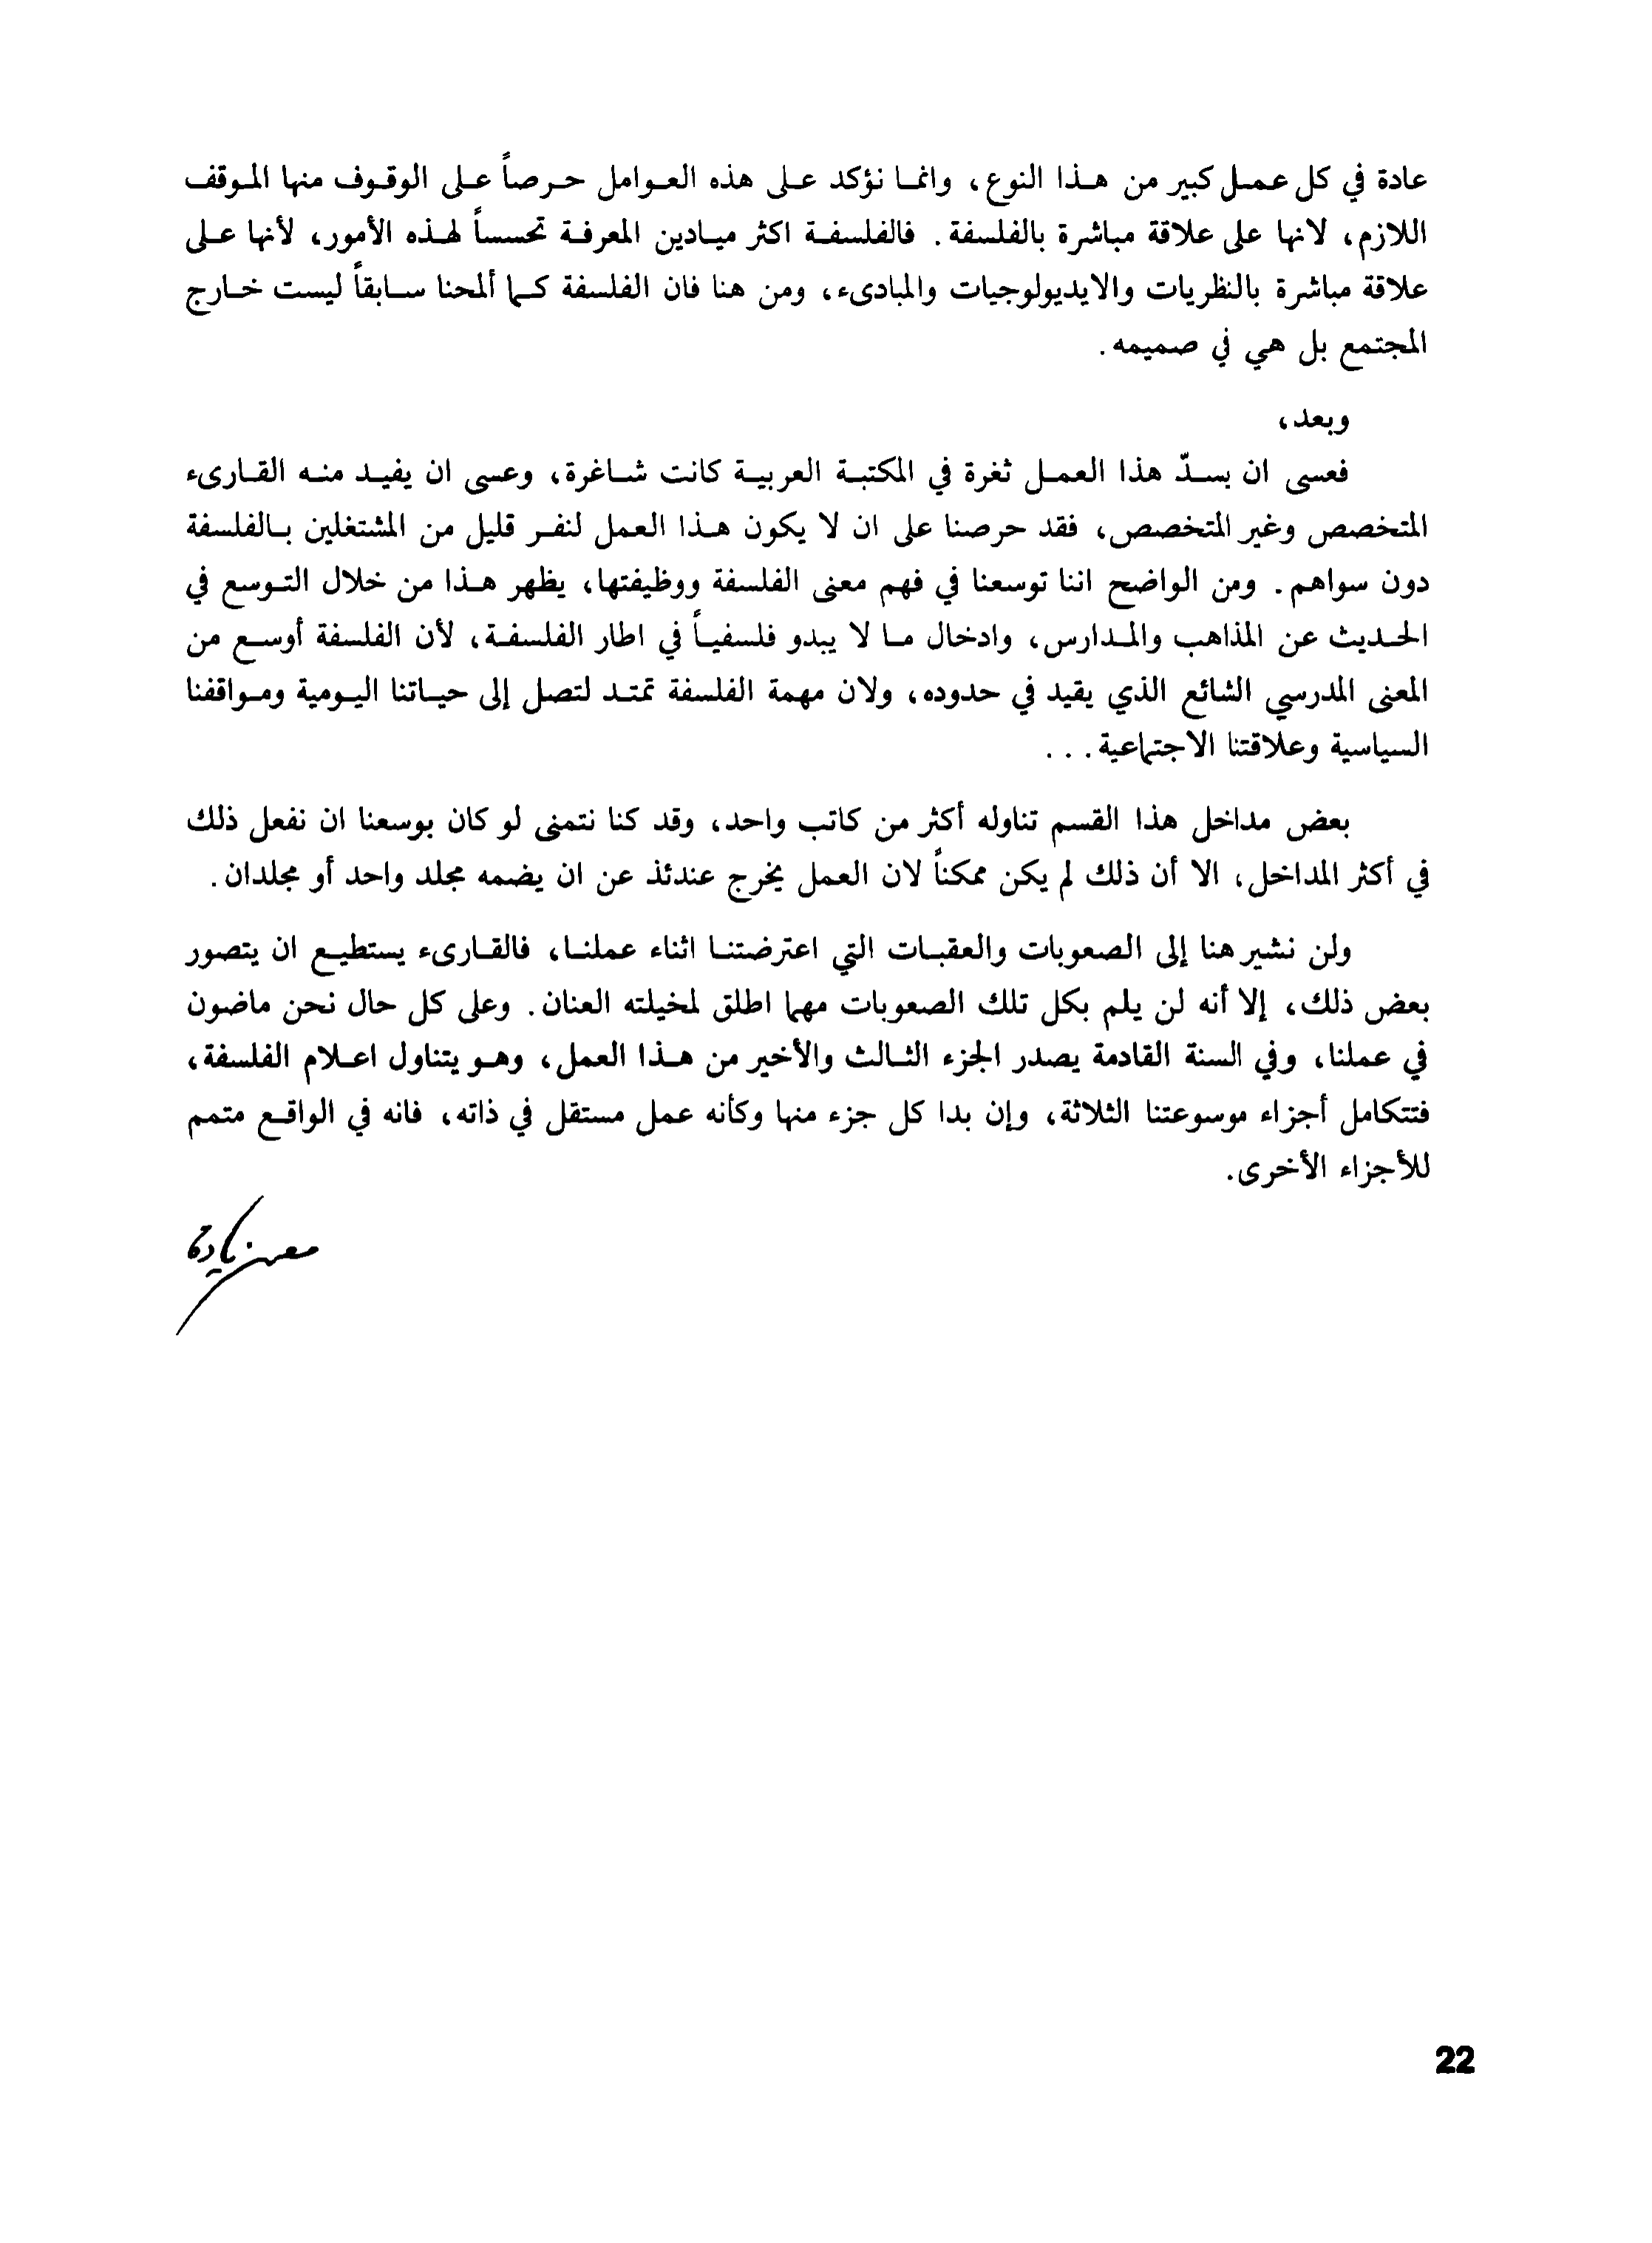 عادة في كل عمل كبير من هذا النوع، وانما نؤكد على هذه العوامل حرصاً على الوقوف منها الموقف
اللازم، لانها على علاقة مباشرة بالفلسفة. فالفلسفة اكثر ميادين المعرفة تحسساً لهذه الأمور، لأنها على
علاقة مباشرة بالنظريات والايديولوجيات والمبادىء، ومن هنا فان الفلسفة كما ألمحنا سابقاً ليست خارج
المجتمع بل هي في صميمه.
وبعد،
فعسى ان يسدّ هذا العمل ثغرة في المكتبة العربية كانت شاغرة، وعسى ان يفيد منه القارىء
المتخصص وغير المتخصص، فقد حرصنا على ان لا يكون هذا العمل لنفر قليل من المشتغلين بالفلسفة
دون سواهم. ومن الواضح اننا توسعنا في فهم معنى الفلسفة ووظيفتها، يظهر هذا من خلال التوسع في
الحديث عن المذاهب والمدارس، وادخال ما لا يبدو فلسفياً في اطار الفلسفة، لأن الفلسفة أوسع من
المعنى المدرسي الشائع الذي يقيد في حدوده، ولان مهمة الفلسفة تمتد لتصل إلى حياتنا اليومية ومواقفنا
السياسية وعلاقتنا الاجتماعية...
بعض مداخل هذا القسم تناوله أكثر من كاتب واحد، وقد كنا نتمنى لو كان بوسعنا ان نفعل ذلك
في أكثر المداخل، الا أن ذلك لم يكن ممكناً لان العمل يخرج عندئذ عن ان يضمه مجلد واحد أو مجلدان.
ولن نشير هنا إلى الصعوبات والعقبات التي اعترضتنا اثناء عملنا، فالقارىء يستطيع ان يتصور
بعض ذلك، إلا أنه لن يلم بكل تلك الصعوبات مهما اطلق لمخيلته العنان. وعلى كل حال نحن ماضون
في عملنا، وفي السنة القادمة يصدر الجزء الثالث والأخير من هذا العمل، وهو يتناول اعلام الفلسفة،
فتتكامل أجزاء موسوعتنا الثلاثة، وإن بدا كل جزء منها وكأنه عمل مستقل في ذاته، فانه في الواقع متمم
للأجزاء الأخرى.
معن زيادة
22